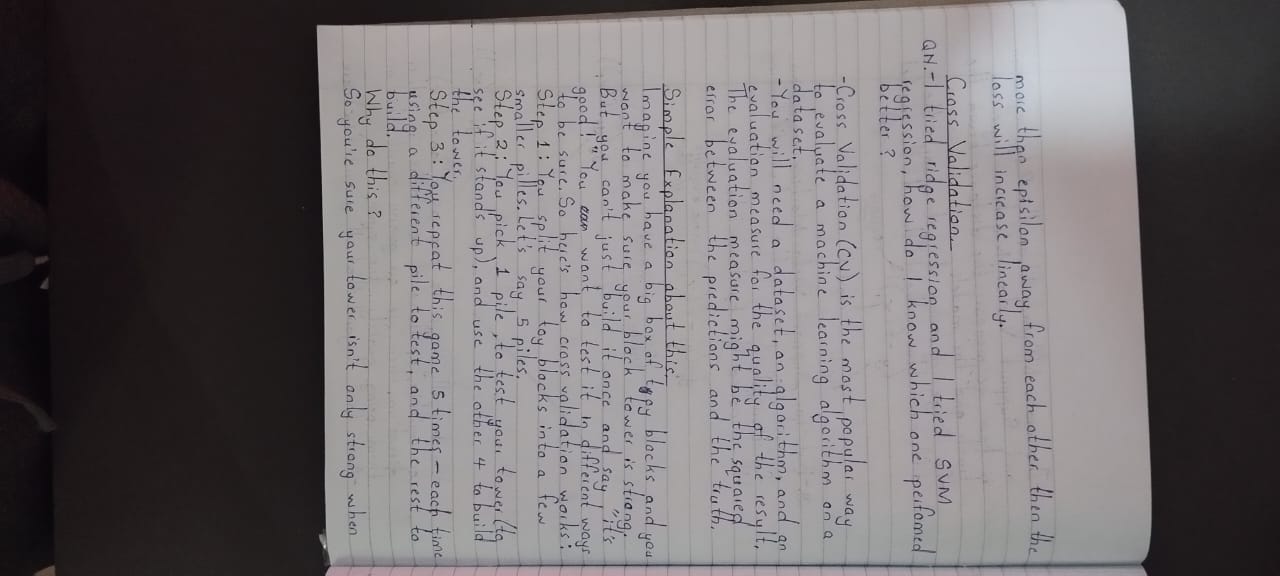 more than epsilon away from each other then the
loss will increase linearly.
Cross Validation
QN.- I tried ridge regression and I tried SVM
regression, how do I know which one perfomed
better?
- Cross Validation (CV) is the most popular way
to evaluate a machine learning algorithm on a
dataset.
- You will need a dataset, an algorithm, and an
evaluation measure for the quality of the result,
The evaluation measure might be the squared
error between the predictions and the truth.
Simple Explanation about this
Imagine you have a big box of toy blocks and you
want to make sure your block tower is strong,
But you can't just build it once and say "it's
good!" You want to test it in different ways
to be sure. So here's how cross validation works:
Step 1: You split your toy blocks into a few
smaller pilles. Let's say 5 piles.
Step 2: You pick 1 pile, to test your tower (to
see if it stands up), and use the other 4 to build
the tower.
Step 3: You repeat this game 5 times - each time
using a different pile to test, and the rest to
build.
Why do this?
So you're sure your tower isn't only strong when